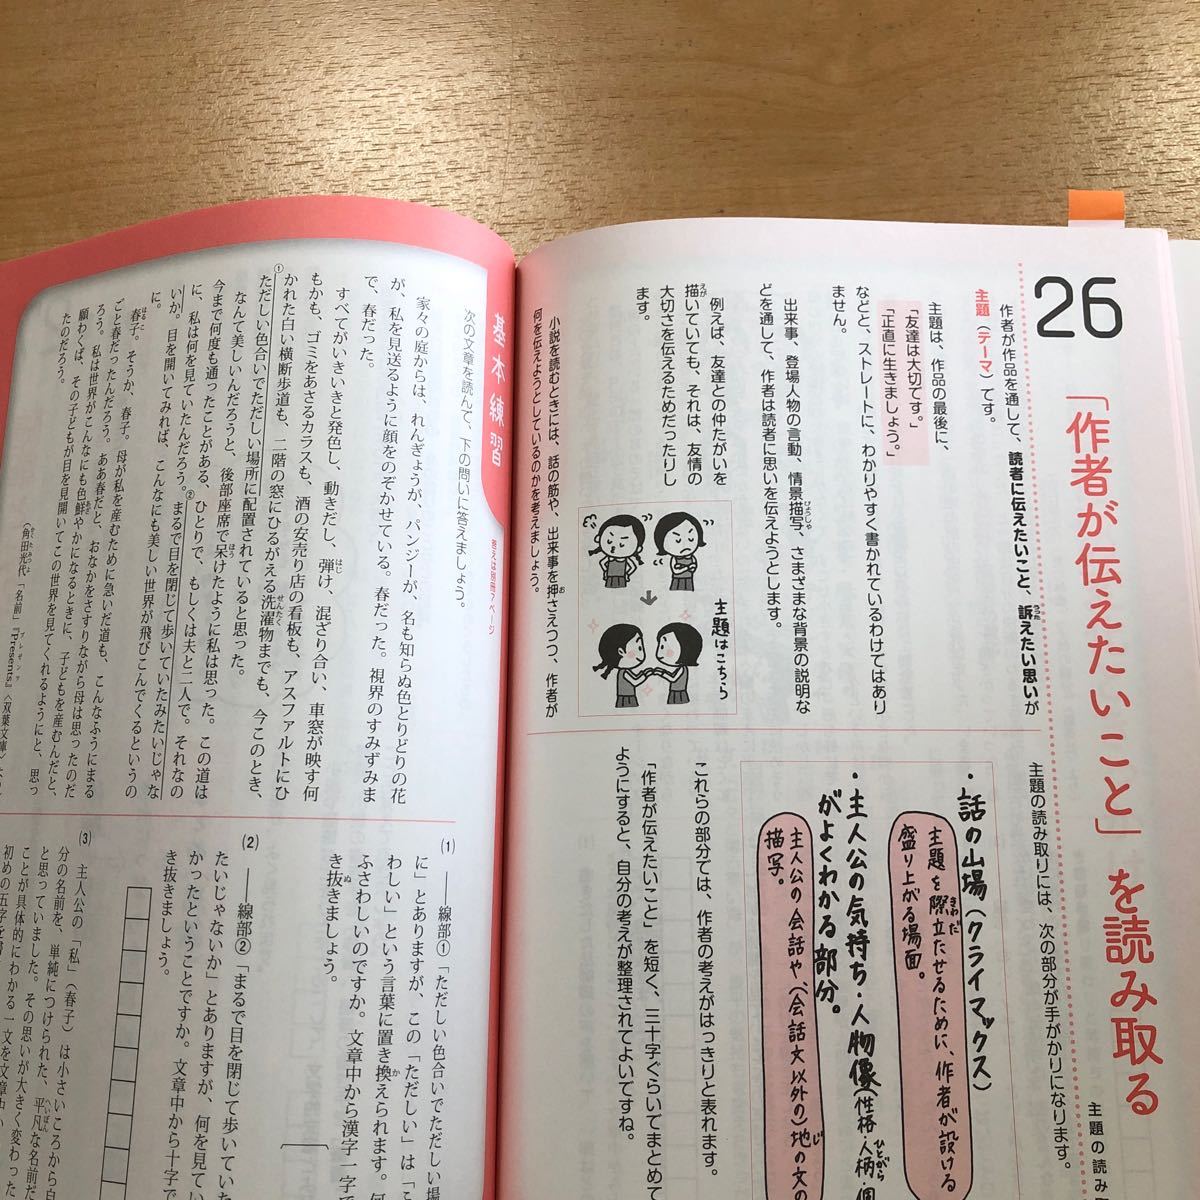 26
「作者が伝えたいこと」を読み取る
作者が作品を通して、読者に伝えたいこと、訴えたい思いが
主題（テーマ）です。
主題は、作品の最後に、
「友達は大切です。」
「正直に生きましょう。」
などと、ストレートに、わかりやすく書かれているわけではあり
ません。
出来事、登場人物の言動、情景描写、さまざまな背景の説明な
どを通して、作者は読者に思いを伝えようとします。
例えば、友達との仲たがいを
描いていても、それは、友情の
大切さを伝えるためだったりし
ます。
主題はこちら
小説を読むときには、話の筋や、出来事を押さえつつ、作者が
何を伝えようとしているのかを考えましょう。
主題の読み
主題の読み取りには、次の部分が手がかりになります。
・話の山場（クライマックス）
主題を際立たせるために、作者が設ける
盛り上がる場面。
・主人公の気持ち・人物像（性格・人柄・個
がよくわかる部分。
主人公の会話や、（会話文以外の）地の文の
描写。
これらの部分では、作者の考えがはっきりと表れます。
「作者が伝えたいこと」を短く、三十字ぐらいでまとめて
ようにすると、自分の考えが整理されてよいですね。
基本練習
答えは別冊7ページ
次の文章を読んで、下の問いに答えましょう。
家々の庭からは、れんぎょうが、パンジーが、名も知らぬ色とりどりの花
が、私を見送るように顔をのぞかせている。春だった。視界のすみずみま
で、春だった。
すべてがいきいきと発色し、動きだし、弾け、混ざり合い、車窓が映す何
もかも、ゴミをあさるカラスも、酒の安売り店の看板も、アスファルトにひ
かれた白い横断歩道も、二階の窓にひるがえる洗濯物までも、今このとき、
①ただしい色合いでただしい場所に配置されていると思った。
なんて美しいんだろうと、後部座席で呆けたように私は思った。この道は
今まで何度も通ったことがある、ひとりで、もしくは夫と二人で。それなの
に、私は何を見ていたんだろう。②まるで目を閉じて歩いていたみたいじゃな
いか。目を開いてみれば、こんなにも美しい世界が飛びこんでくるというの
に。
春子。そうか、春子。母が私を産むために急いだ道も、こんなふうにまる
ごと春だったんだろう。ああ春だと、おなかをさすりながら母は思ったのだ
ろう。私は世界がこんなにも色鮮やかになるときに、子どもを産むんだと、
願わくば、その子どもが目を見開いてこの世界を見てくれるようにと、思っ
たのだろう。
（角田光代「名前」『Presents』〈双葉文庫〉
(1) ――線部①「ただしい色合いでただしい場
に」とありますが、この「ただしい」は「こ
わしい」という言葉に置き換えられます。何
ふさわしいのですか。文章中から漢字一字で
き抜きましょう。
(2) ――線部②「まるで目を閉じて歩いていた
たいじゃないか」とありますが、何を見てい
かったということですか。文章中から十字で
き抜きましょう。
(3) 主人公の「私」（春子）は小さいころから自
分の名前を、単純につけられた、平凡な名前だ
と思っていました。その思いが大きく変わった
ことが具体的にわかる一文を文章中
初めの五字を書